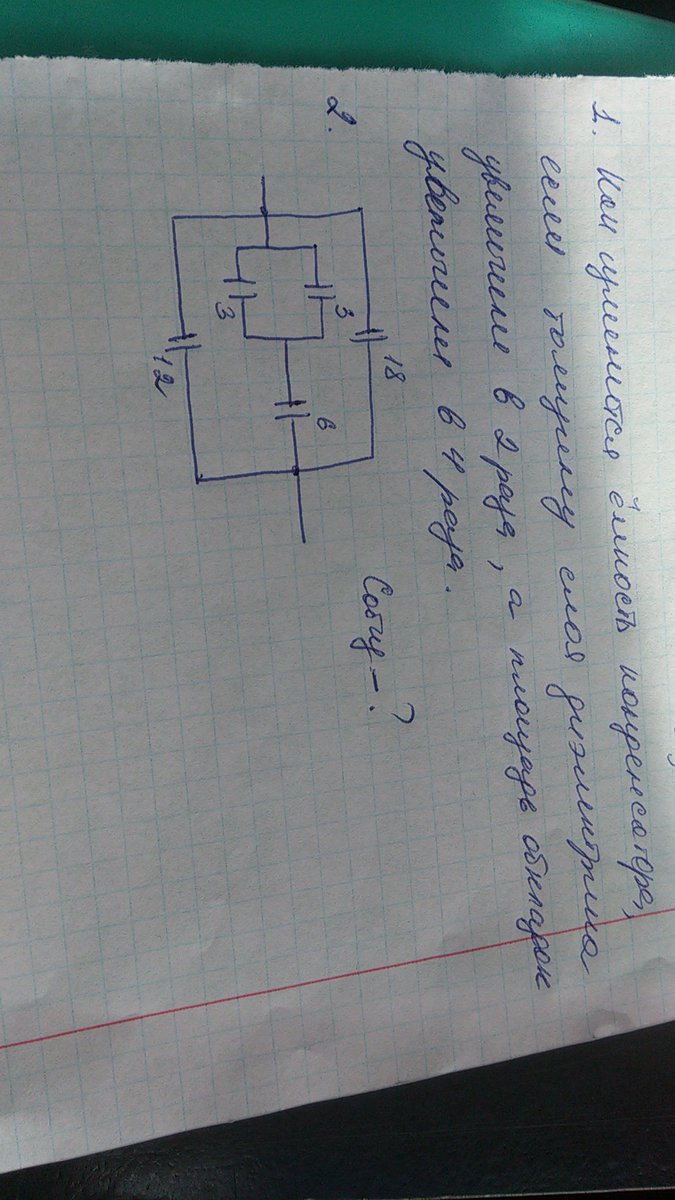 1. Как изменится ёмкость конденсатора,
если толщину слоя диэлектрика
увеличили в 2 раза, а площадь обкладок
увеличили в 4 раза.
2.
18
3
3
6
12
Собщ - ?